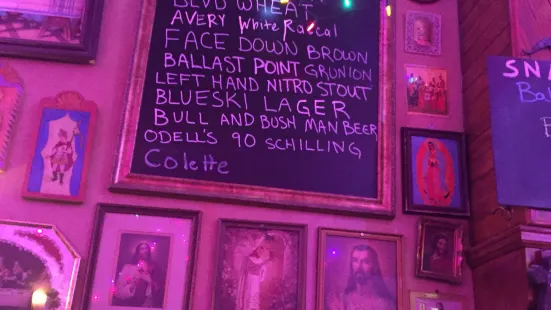 BLVD WHEAT
AVERY White Rascal
FACE DOWN BROWN
BALLAST POINT GRUNION
LEFT HAND NITRO STOUT
BLUESKI LAGER
BULL AND BUSH MAN BEER
ODELL'S 90 SCHILLING
Colette
SNA
Ba